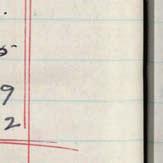 5
9
2